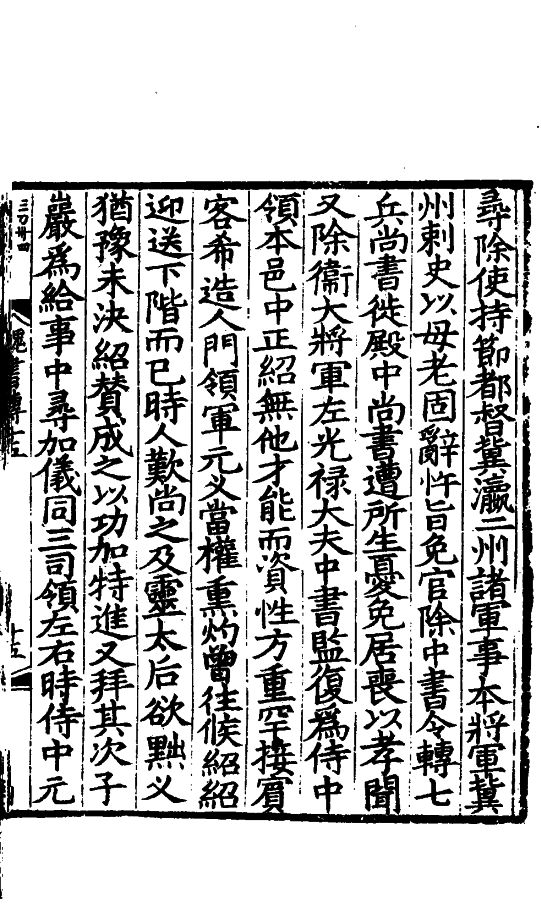 尋除使持節都督冀瀛二州諸軍事本將軍冀
州刺史以母老固辭忤旨免官除中書令轉七
兵尚書徙殿中尚書遭所生憂免居喪以孝聞
又除衞大將軍左光祿大夫中書監復爲侍中
領本邑中正紹無他才能而資性方重罕接賓
客希造人門領軍元义當權熏灼曾往候紹紹
迎送下階而已時人歎尚之及靈太后欲黜义
猶豫未決紹贊成之以功加特進又拜其次子
巖爲給事中尋加儀同三司領左右時侍中元
三刀卅四
魏書傳十五
十五